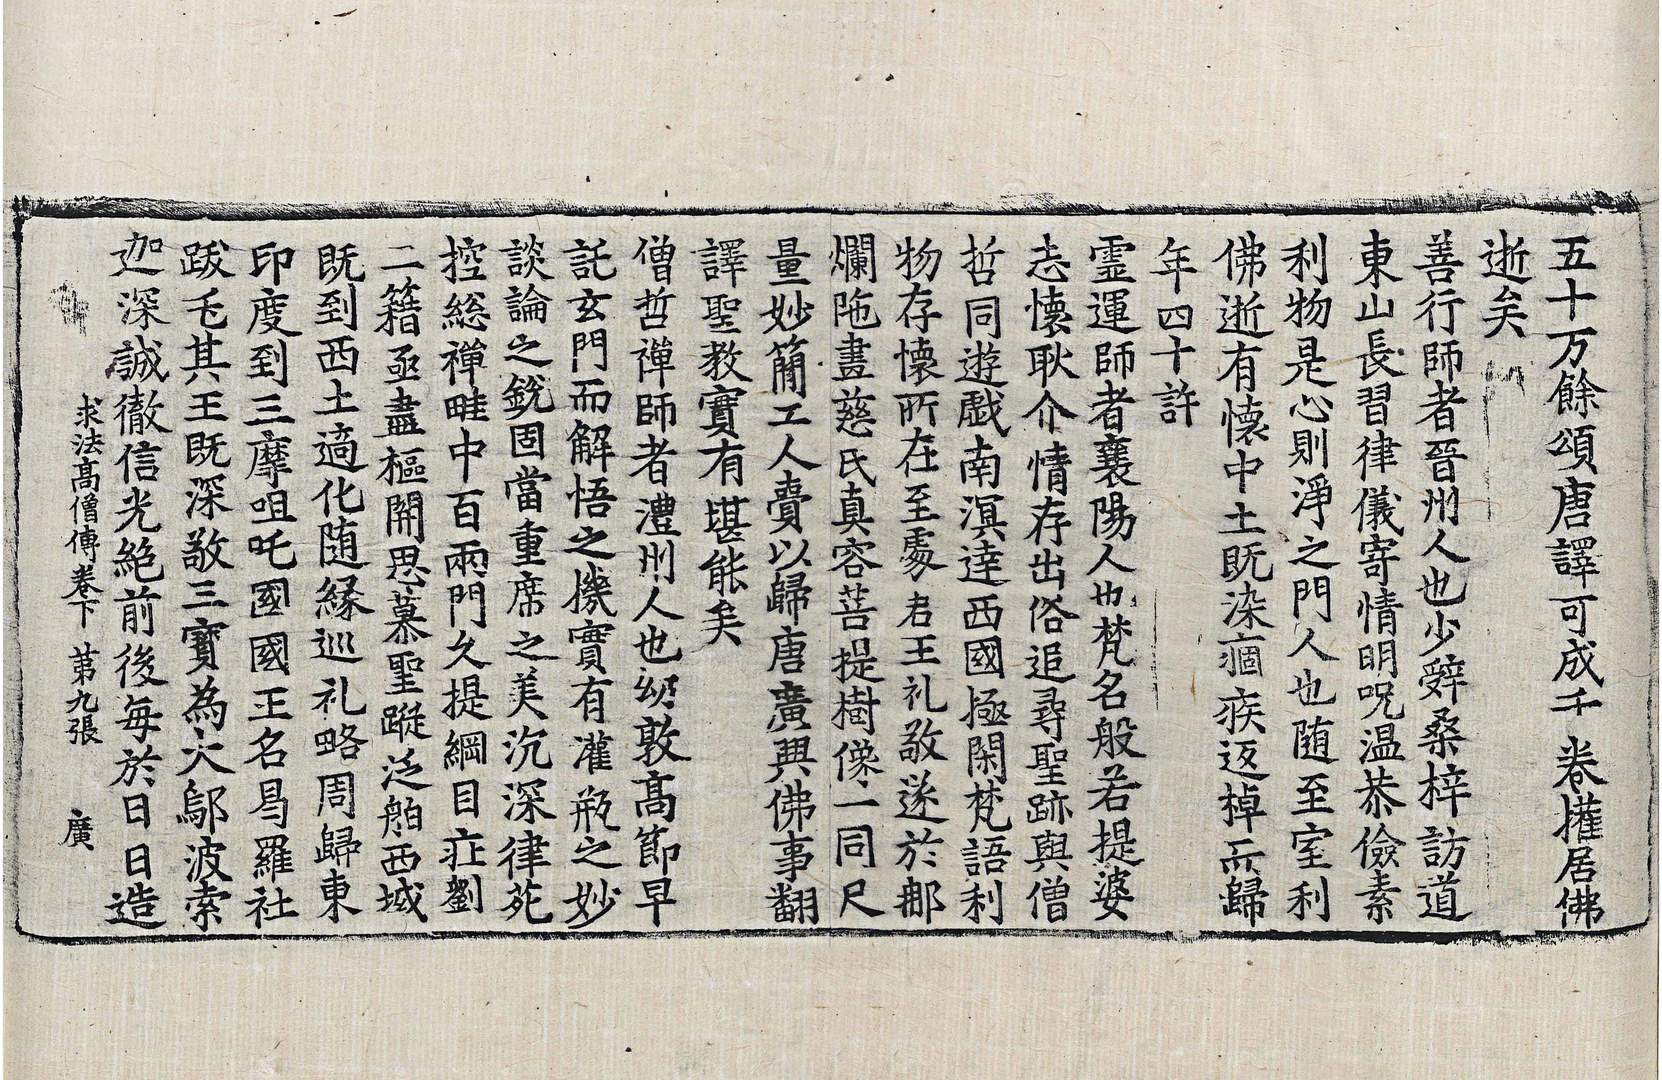 五十万餘頌唐譯可成千卷擁居佛
逝矣
善行師者晉州人也少辤桑梓訪道
東山長習律儀寄情明呪温恭儉素
利物是心則淨之門人也随至室利
佛逝有懷中土既染痼疾返棹而歸
年四十許
靈運師者襄陽人也梵名般若提婆
志懷耿介情存出俗追尋聖跡與僧
哲同遊戯南溟達西國極閑梵語利
物存懷所在至處君王礼敬遂於那
爛陁畫慈氏真容菩提樹像一同尺
量妙簡工人賷以歸唐廣興佛事翻
譯聖教實有堪能矣
僧哲禪師者澧州人也幼敦髙節早
託玄門而解悟之機實有灌瓶之妙
談論之銳固當重席之美沉深律苑
控総禪畦中百兩門久提綱目庄劉
二籍亟盡樞關思慕聖蹤泛舶西域
既到西土適化随縁巡礼略周歸東
印度到三摩呾吒國國王名曷羅社
跋乇其王既深敬三寳為大鄔波索
迦深誠徹信光絶前後毎於日日造
求法髙僧傳卷下　苐九張　廣